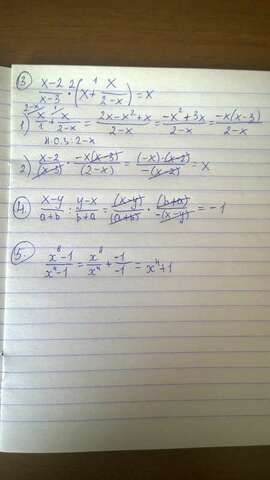 ③ (x-2)/(x-3) ·² (x +¹ x/(2-x)) = x
1) ²⁻ˣ⁄ x/1 + ¹⁄ x/(2-x) = (2x-x²+x)/(2-x) = (-x²+3x)/(2-x) = (-x(x-3))/(2-x)
Н.О.З: 2-x
2) (x-2)/(x-3) · (-x(x-3))/(2-x) = ((-x)·(x-2))/(-(x-2)) = x
④. (x-y)/(a+b) : (y-x)/(b+a) = (x-y)/(a+b) · (b+a)/(-(x-y)) = -1
⑤. (x⁸-1)/(x⁴-1) = x⁸/x⁴ + (-1)/(-1) = x⁴+1